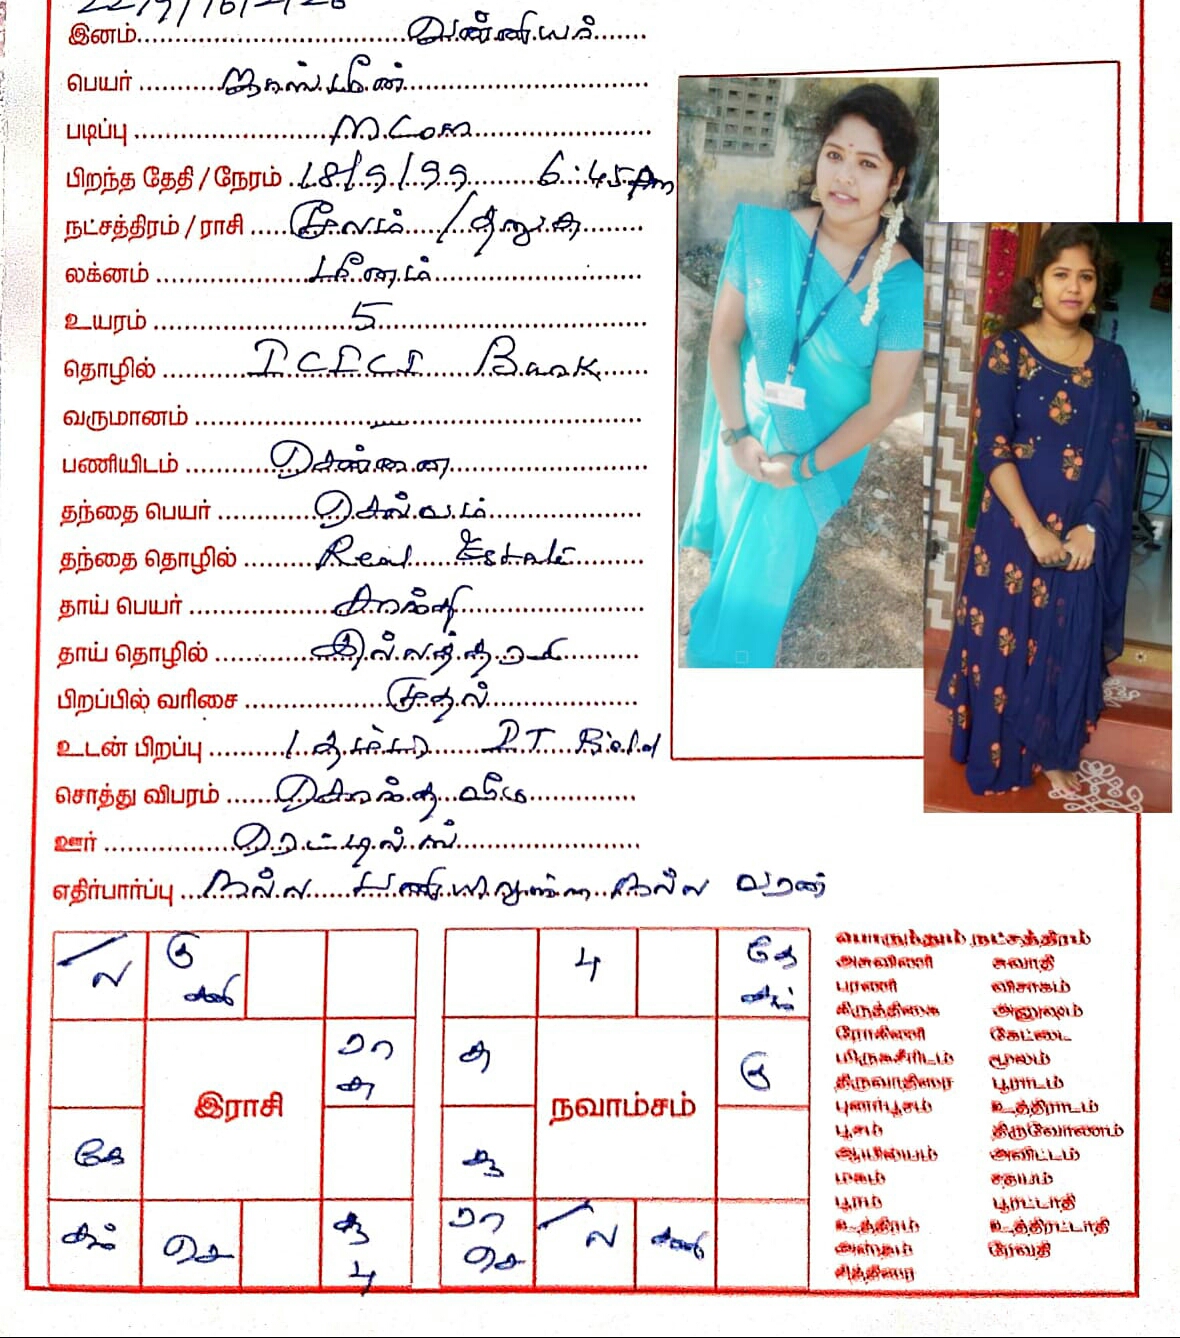 இனம் வன்னியர்
பெயர் ஜாஸ்மீன்
படிப்பு M.Com
பிறந்த தேதி / நேரம் 18/9/99 6:45 Pm
நட்சத்திரம் / ராசி மூலம் / தனுசு
லக்னம் மீனம்
உயரம் 5
தொழில் ICICI Bank
வருமானம்
பணியிடம் சென்னை
தந்தை பெயர் செல்வம்
தந்தை தொழில் Real Estate
தாய் பெயர் சாந்தி
தாய் தொழில் இல்லத்தரசி
பிறப்பில் வரிசை முதல்
உடன் பிறப்பு 1 தம்பி IT Field
சொத்து விபரம் சொந்த வீடு
ஊர் ரெட்டில்ஸ்
எதிர்பார்ப்பு நல்ல பணியிலுள்ள நல்ல வரன்
ல
கு
சனி
ரா
சு
கே
இராசி
சந்
செ
சூ
பு
பு
கே
சந்
சு
கு
சூ
நவாம்சம்
ரா
செ
ல
சனி
பொருந்தும் நட்சத்திரம்
அசுவினி சுவாதி
பரணி விசாகம்
கிருத்திகை அனுஷம்
ரோகிணி கேட்டை
மிருகசீரிடம் மூலம்
திருவாதிரை பூராடம்
புனர்பூசம் உத்திராடம்
பூசம் திருவோணம்
ஆயில்யம் அவிட்டம்
மகம் சதயம்
பூரம் பூரட்டாதி
உத்திரம் உத்திரட்டாதி
அஸ்தம் ரேவதி
சித்திரை